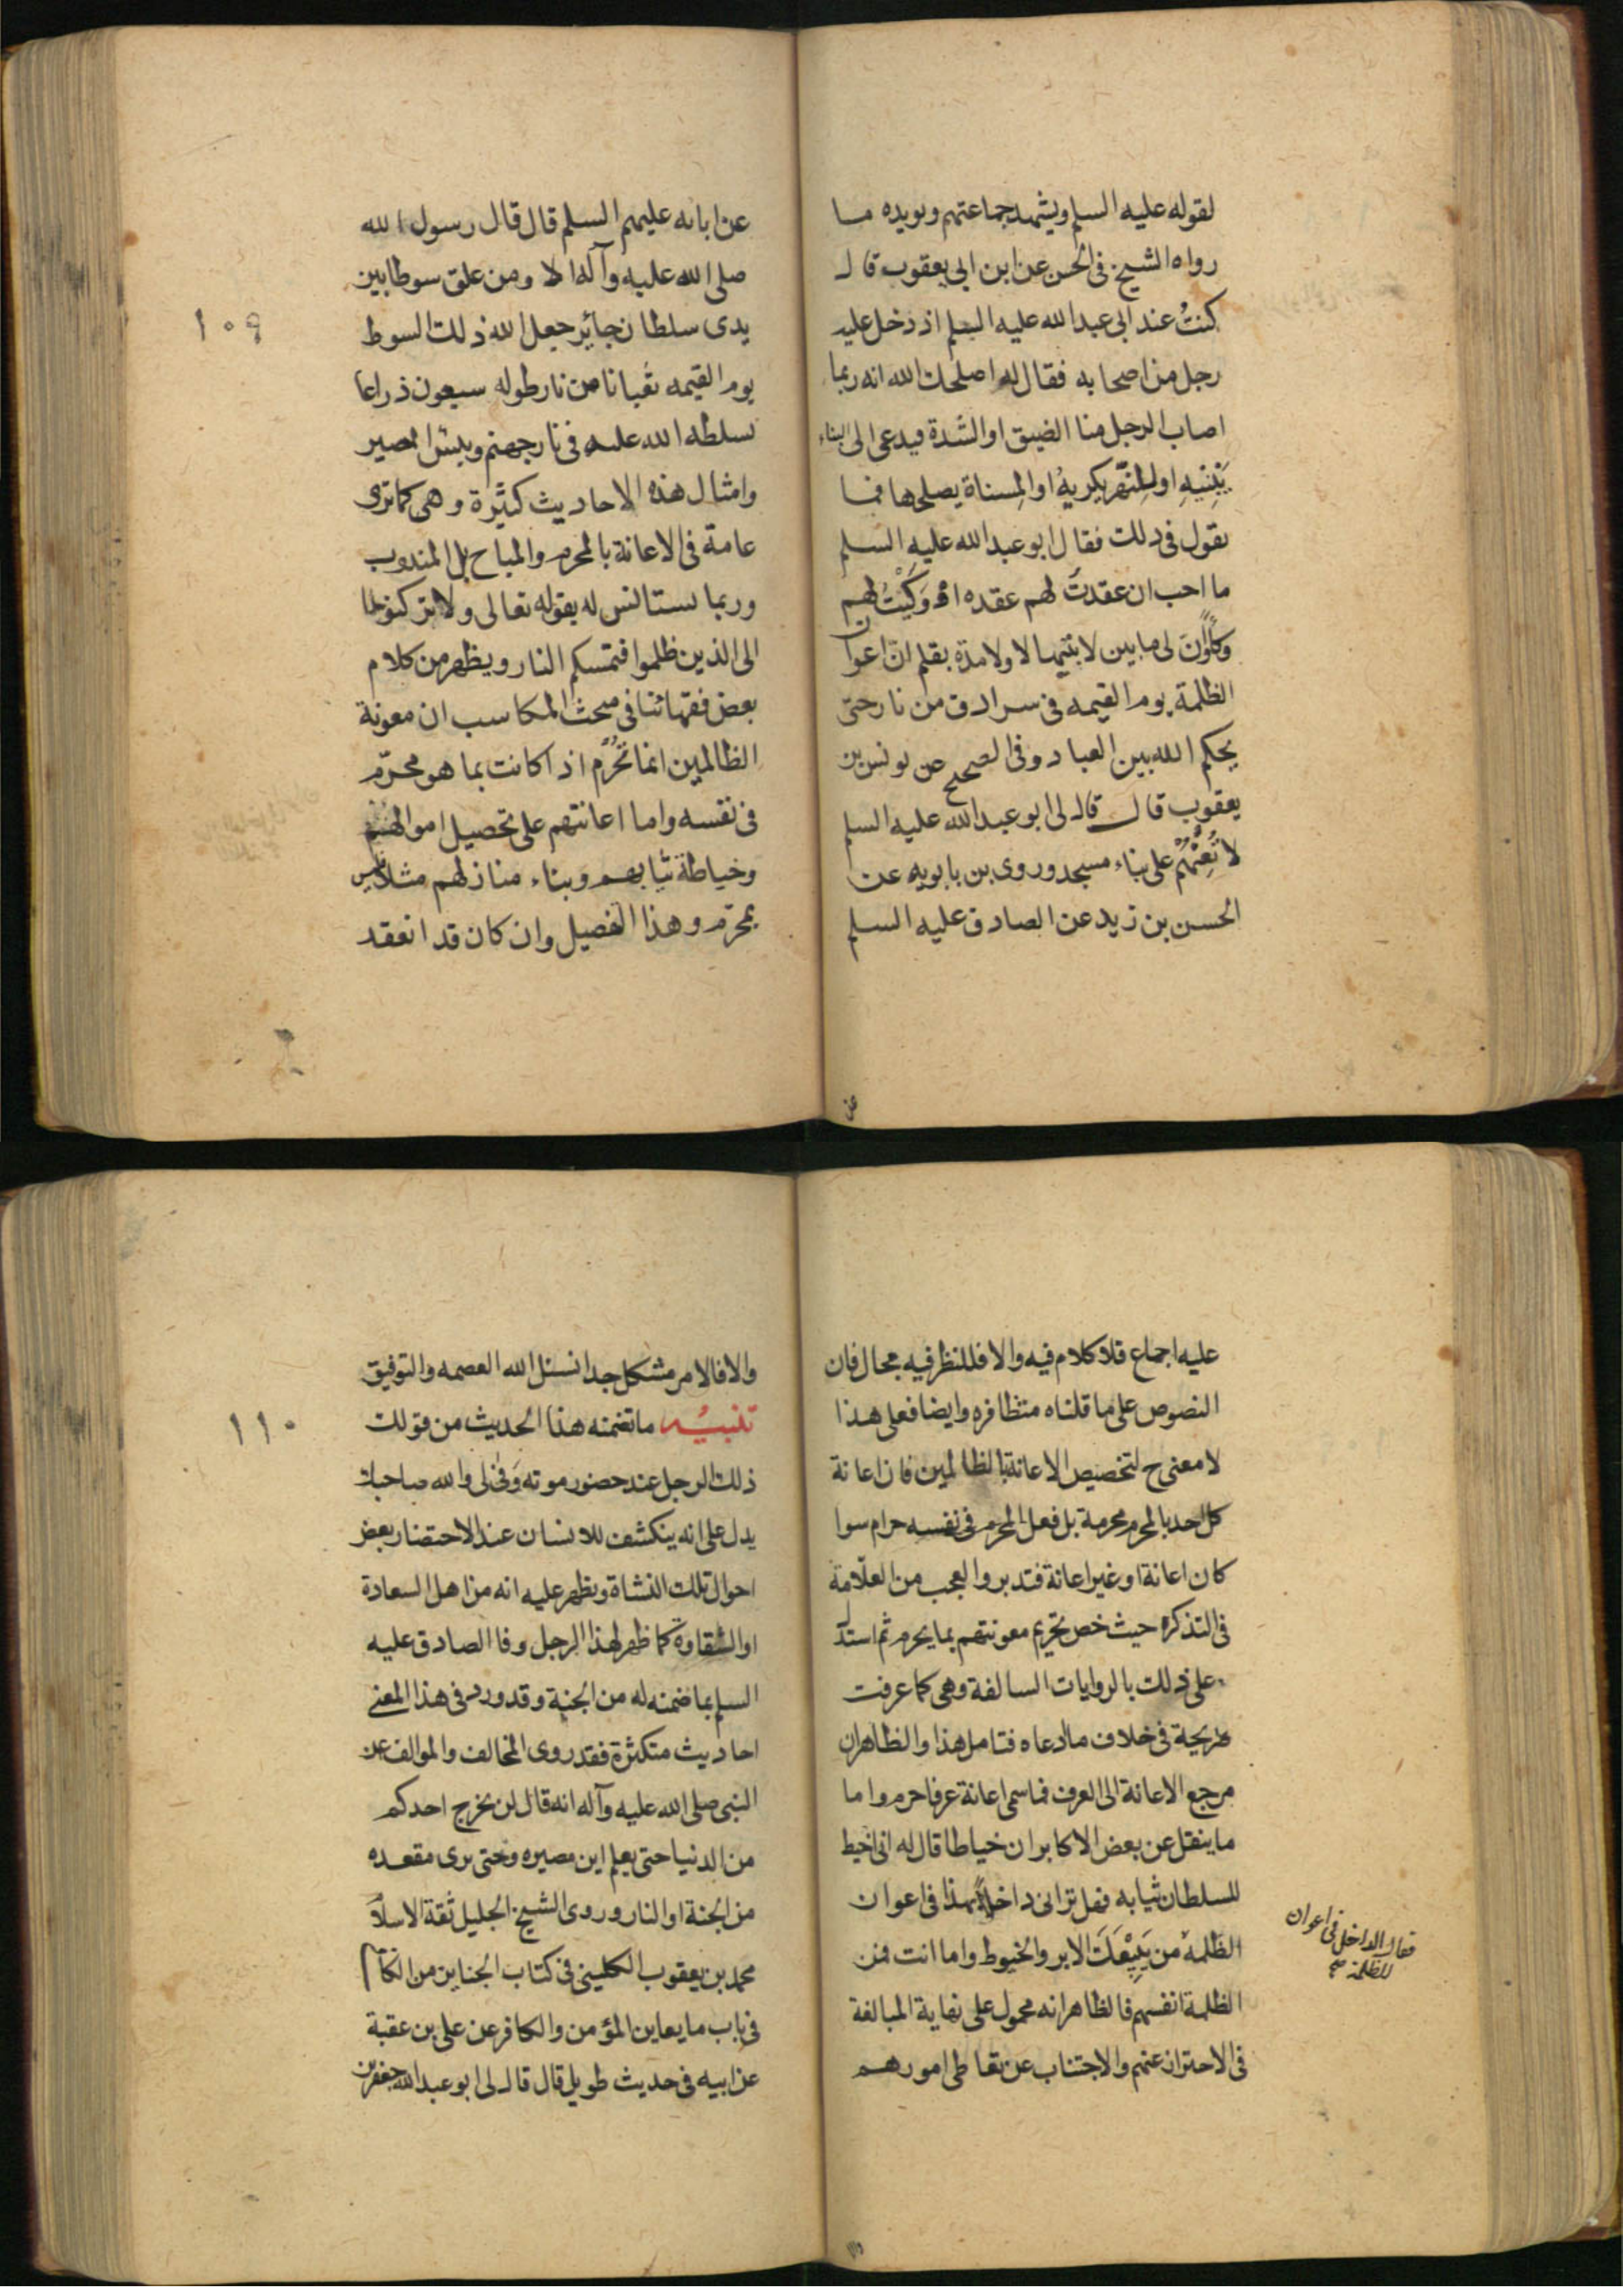 لقوله عليه السلم ويشهد جماعتهم ويويده ما
رواه الشيخ فى الحسن عن ابن ابى يعقوب قال
كنتُ عند ابى عبد الله عليه السلم اذ دخل عليه
رجل من اصحابه فقال له اصلحك الله انه ربما
اصاب الرجل منا الضيق او الشدة فيدعى الى البناء
يَبْنِيهِ او للنّهر يكريهُ او المِسناة يصلحها فما
تقول فى ذلك فقال ابو عبد الله عليه السلم
ما احب ان عقدتُ لهم عقده او وَكَيْتُ لهم
وكاءً وَانَ لى ما بين لابتيها لا ولا مدّة بقلم انّ اعوان
الظلمة يوم القيمه فى سرادق من نار حتى
يحكم الله بين العباد وفى الصحيح عن يونس بن
يعقوب قال قال لى ابو عبد الله عليه السلم
لا تُعِنْهُمْ على بناء مسجد وروى بن بابويه عن
الحسن بن زيد عن الصادق عليه السلم
عن
عن ابائه عليهم السلم قال قال رسول الله
صلى الله عليه وآله الا ومن علق سوطا بين
يدى سلطان جائر جعل الله ذلك السوط
يوم القيمه ثعبانا من نار طوله سبعون ذراعا
يسلطه الله عليه فى نار جهنم وبيس المصير
وامثال هذه الاحاديث كثيرة وهى كما ترى
عامة فى الاعانة بالمحرم والمباح بل المندوب
وربما يستانس له بقوله تعالى ولا تركنوا
الى الذين ظلموا فتمسكم النار ويظهر من كلام
بعض فقهائنا فى مبحث المكاسب ان معونة
الظالمين انما تَحُرُم اذا كانت بما هو محرّم
فى نفسه واما اعانتهم على تحصيل اموالهم
وخياطة ثيابهم وبناء منازلهم مثلا فليس
بمحرّم وهذا التفصيل وان كان قد انعقد
١٠٩
عليه اجماع فلا كلام فيه والا فللنظر فيه مجال فان
النصوص على ما قلناه متظافره وايضا فعلى هذا
لا معنى ح لتخصيص الاعانة بالظالمين فان اعانة
كل احد بالمحرم محرمة بل فعل المحرم فى نفسه حرام سوا
كان اعانة او غير اعانة فتدبر والعجب من العلّامة
فى التذكره حيث خص تحريم معونتهم بما يحرم ثم استدل
على ذلك بالروايات السالفة وهى كما عرفت
صريحة فى خلاف ما ادعاه فتامل هذا والظاهر ان
مرجع الاعانة الى العرف فما سمى اعانة عرفا حرم واما
ما ينقل عن بعض الاكابر ان خياطا قال له انى اخيط
للسلطان ثيابه فهل ترانى داخلاً بهذا فى اعوان
الظلمة من يَبِيْعَكَ الابر والخيوط واما انت فمن
الظلمة انفسهم فالظاهر انه محمول على نهاية المبالغة
فى الاحتراز عنهم والاجتناب عن تعاطى امورهم
فقال الداخل فى اعوان
الظلمة صح
والا فالامر مشكل جدا نسئل الله العصمه والتوفيق
تنبيه ما تضمنه هذا الحديث من قول
ذلك الرجل عند حضور موته وَفى لى والله صاحبك
يدل على انه ينكشف للانسان عند الاحتضار بعض
احوال تلك النشاة ويظهر عليه انه من اهل السعادة
او الشقاوة كما ظهر لهذا الرجل وفا الصادق عليه
السلم بما ضمنه له من الجنة وقد ورد فى هذا المعنى
احاديث متكثرة فقد روى المخالف والموالف عن
النبى صلى الله عليه وآله انه قال لن يخرج احدكم
من الدنيا حتى يعلم اين مصيره وحتى يرى مقعده
من الجنة او النار وروى الشيخ الجليل ثقة الاسلام
محمد بن يعقوب الكلينى فى كتاب الجنايز من الكافى
فى باب ما يعاين المؤمن والكافر عن على بن عقبة
عن ابيه فى حديث طويل قال قال لى ابو عبد الله جعفر بن
١١٠